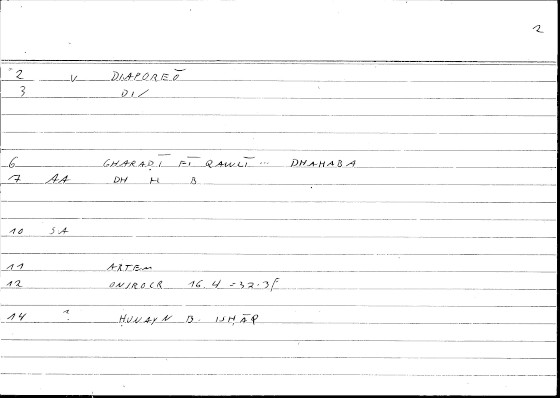 2
2 V DIAPOREŌ
3 DI/
6 GHARAḌĪ FĪ QAWLĪ ... DHAHABA
7 AA DH H B
10 SA
11 ARTEM
12 ONIROCR 16.4 = 32.3f
14 ? ḤUNAYN B. ISḤĀQ